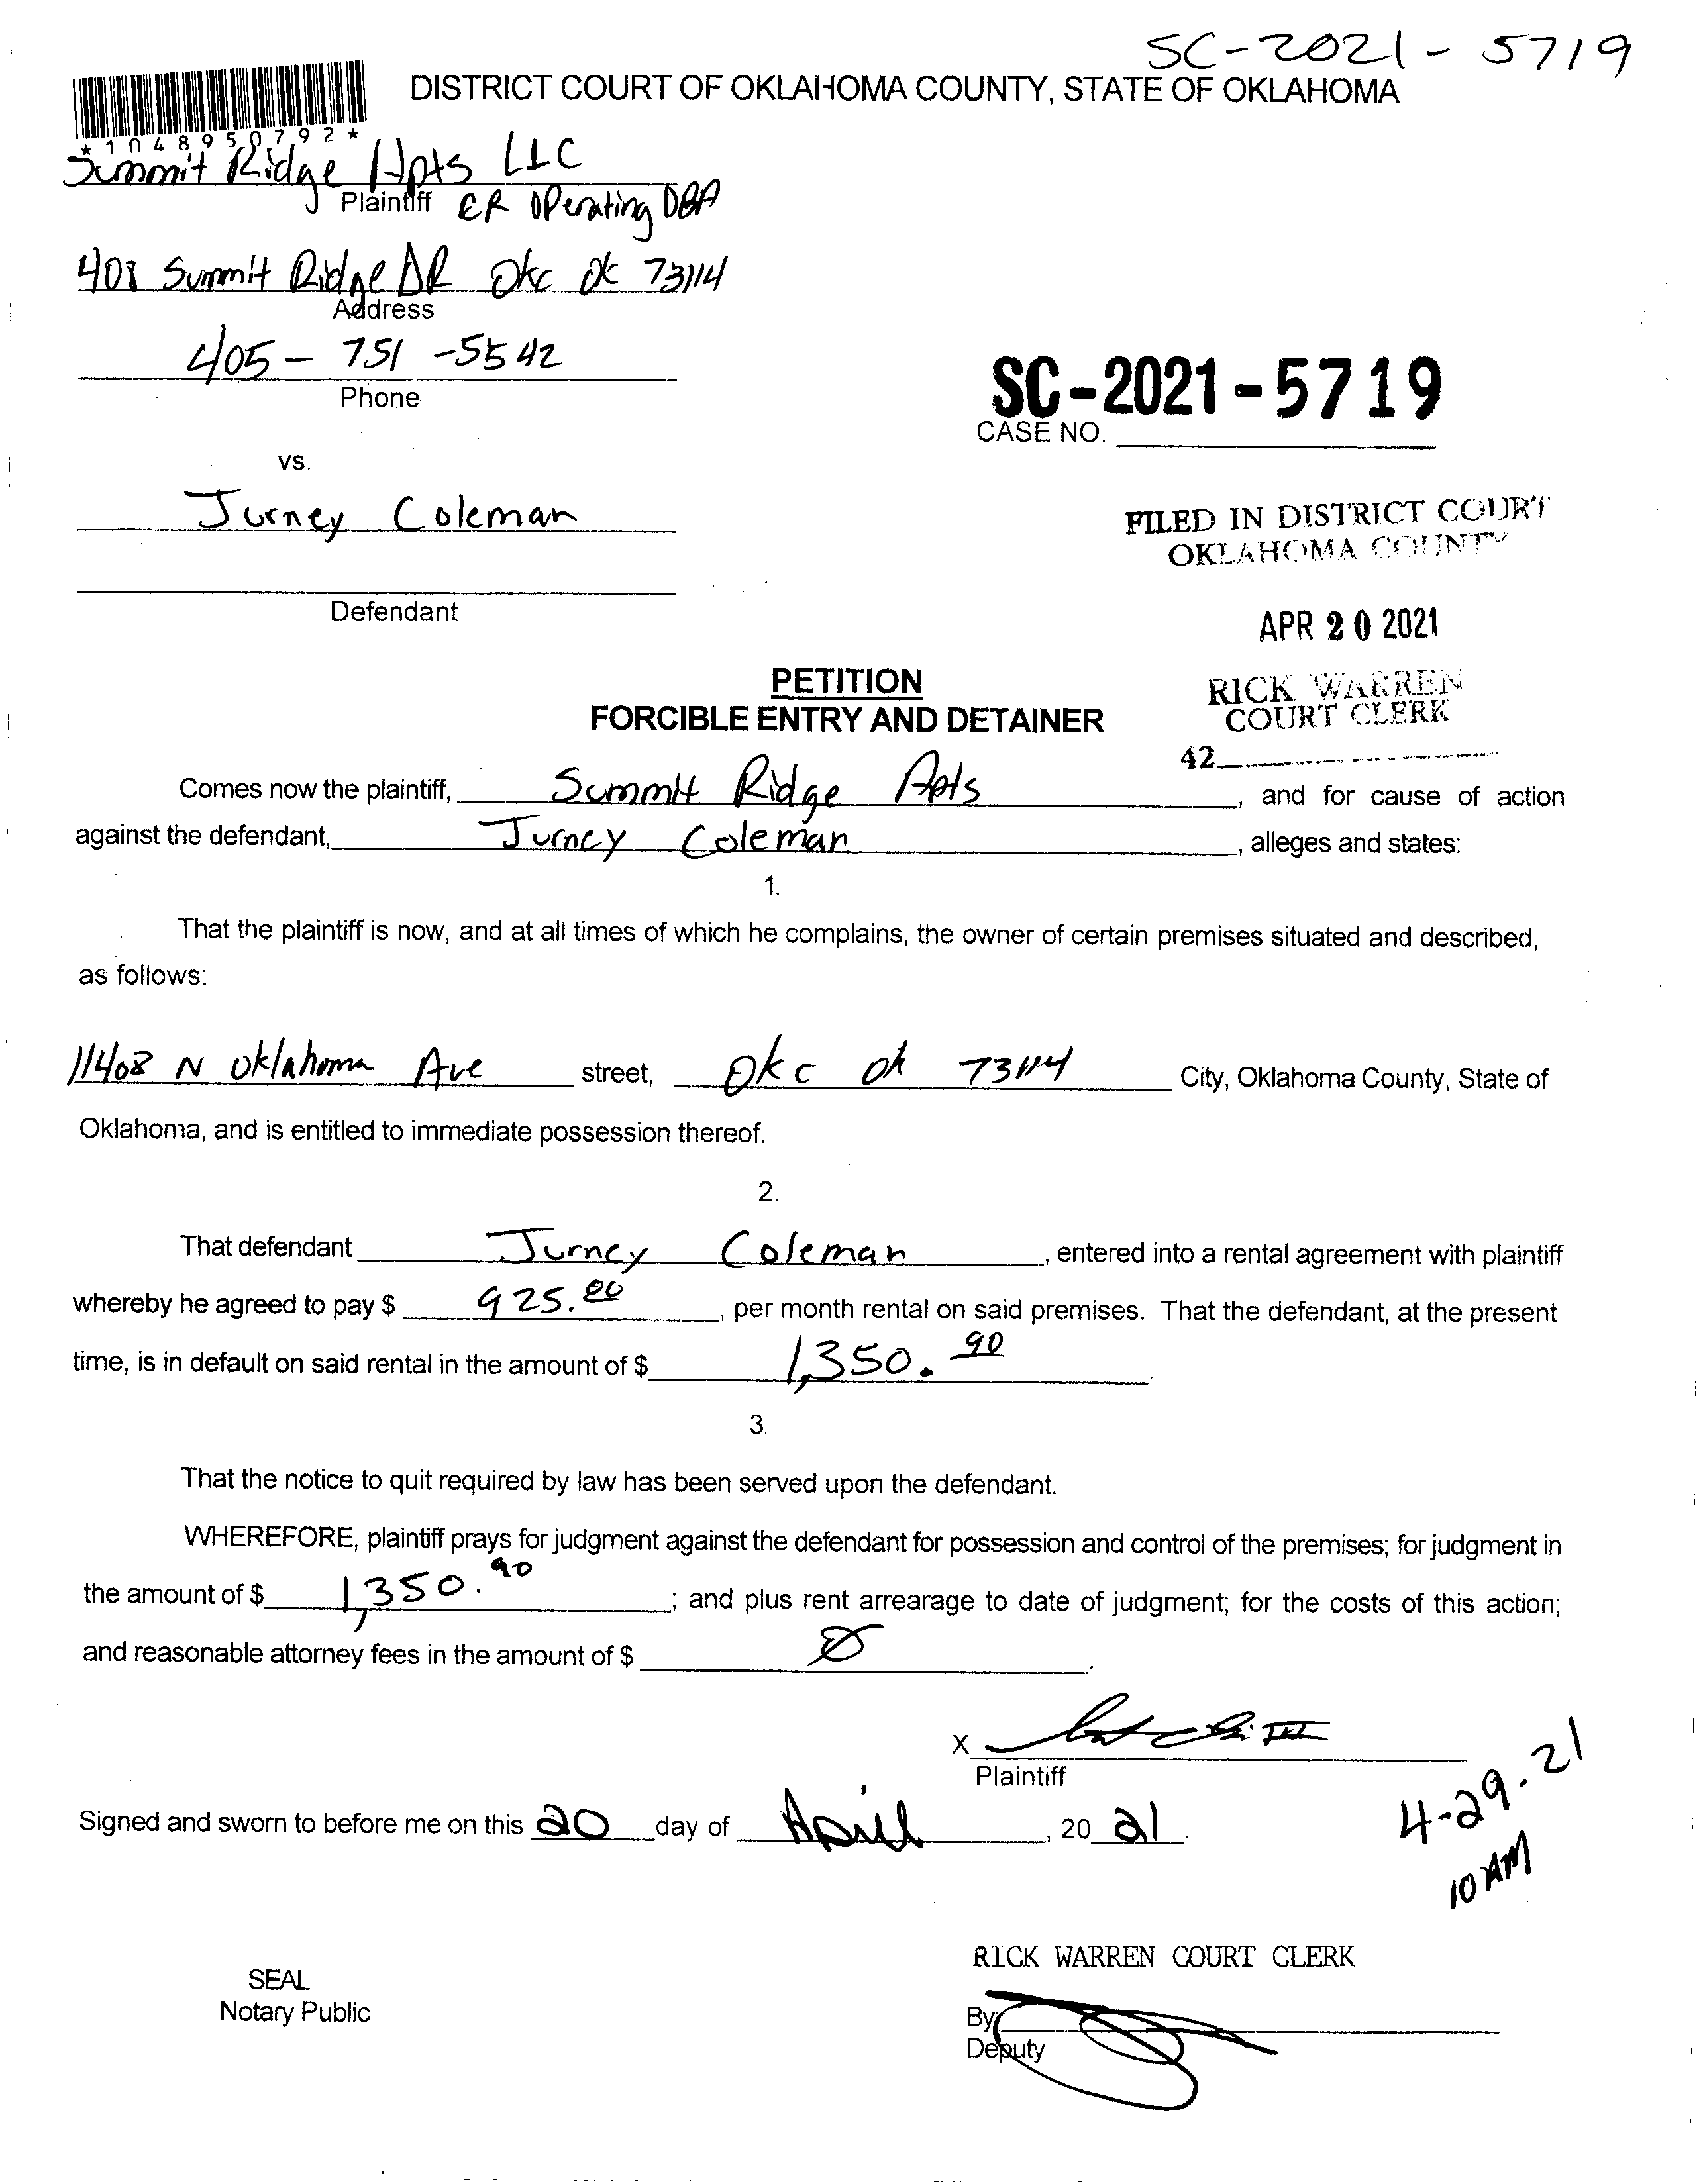 SC-2021-5719
DISTRICT COURT OF OKLAHOMA COUNTY, STATE OF OKLAHOMA
*1048950792*
Summit Ridge Apts LLC
Plaintiff ER Operating DBA
408 Summit Ridge DR Okc Ok 73114
Address
405-751-5542
Phone
SC-2021-5719
CASE NO.
vs.
Jurney Coleman
Defendant
FILED IN DISTRICT COURT
OKLAHOMA COUNTY
APR 20 2021
RICK WARREN
COURT CLERK
42
PETITION
FORCIBLE ENTRY AND DETAINER
Comes now the plaintiff, Summit Ridge Apts, and for cause of action
against the defendant, Jurney Coleman, alleges and states:
1.
That the plaintiff is now, and at all times of which he complains, the owner of certain premises situated and described,
as follows:
11408 N Oklahoma Ave street, Okc Ok 73114 City, Oklahoma County, State of
Oklahoma, and is entitled to immediate possession thereof.
2.
That defendant Jurney Coleman, entered into a rental agreement with plaintiff
whereby he agreed to pay $ 925.00, per month rental on said premises. That the defendant, at the present
time, is in default on said rental in the amount of $ 1,350.90.
3.
That the notice to quit required by law has been served upon the defendant.
WHEREFORE, plaintiff prays for judgment against the defendant for possession and control of the premises; for judgment in
the amount of $ 1,350.90; and plus rent arrearage to date of judgment; for the costs of this action;
and reasonable attorney fees in the amount of $ Ø.
X
Plaintiff
Signed and sworn to before me on this 20 day of April, 20 21.
4-29-21
10 AM
RICK WARREN COURT CLERK
SEAL
Notary Public
By
Deputy